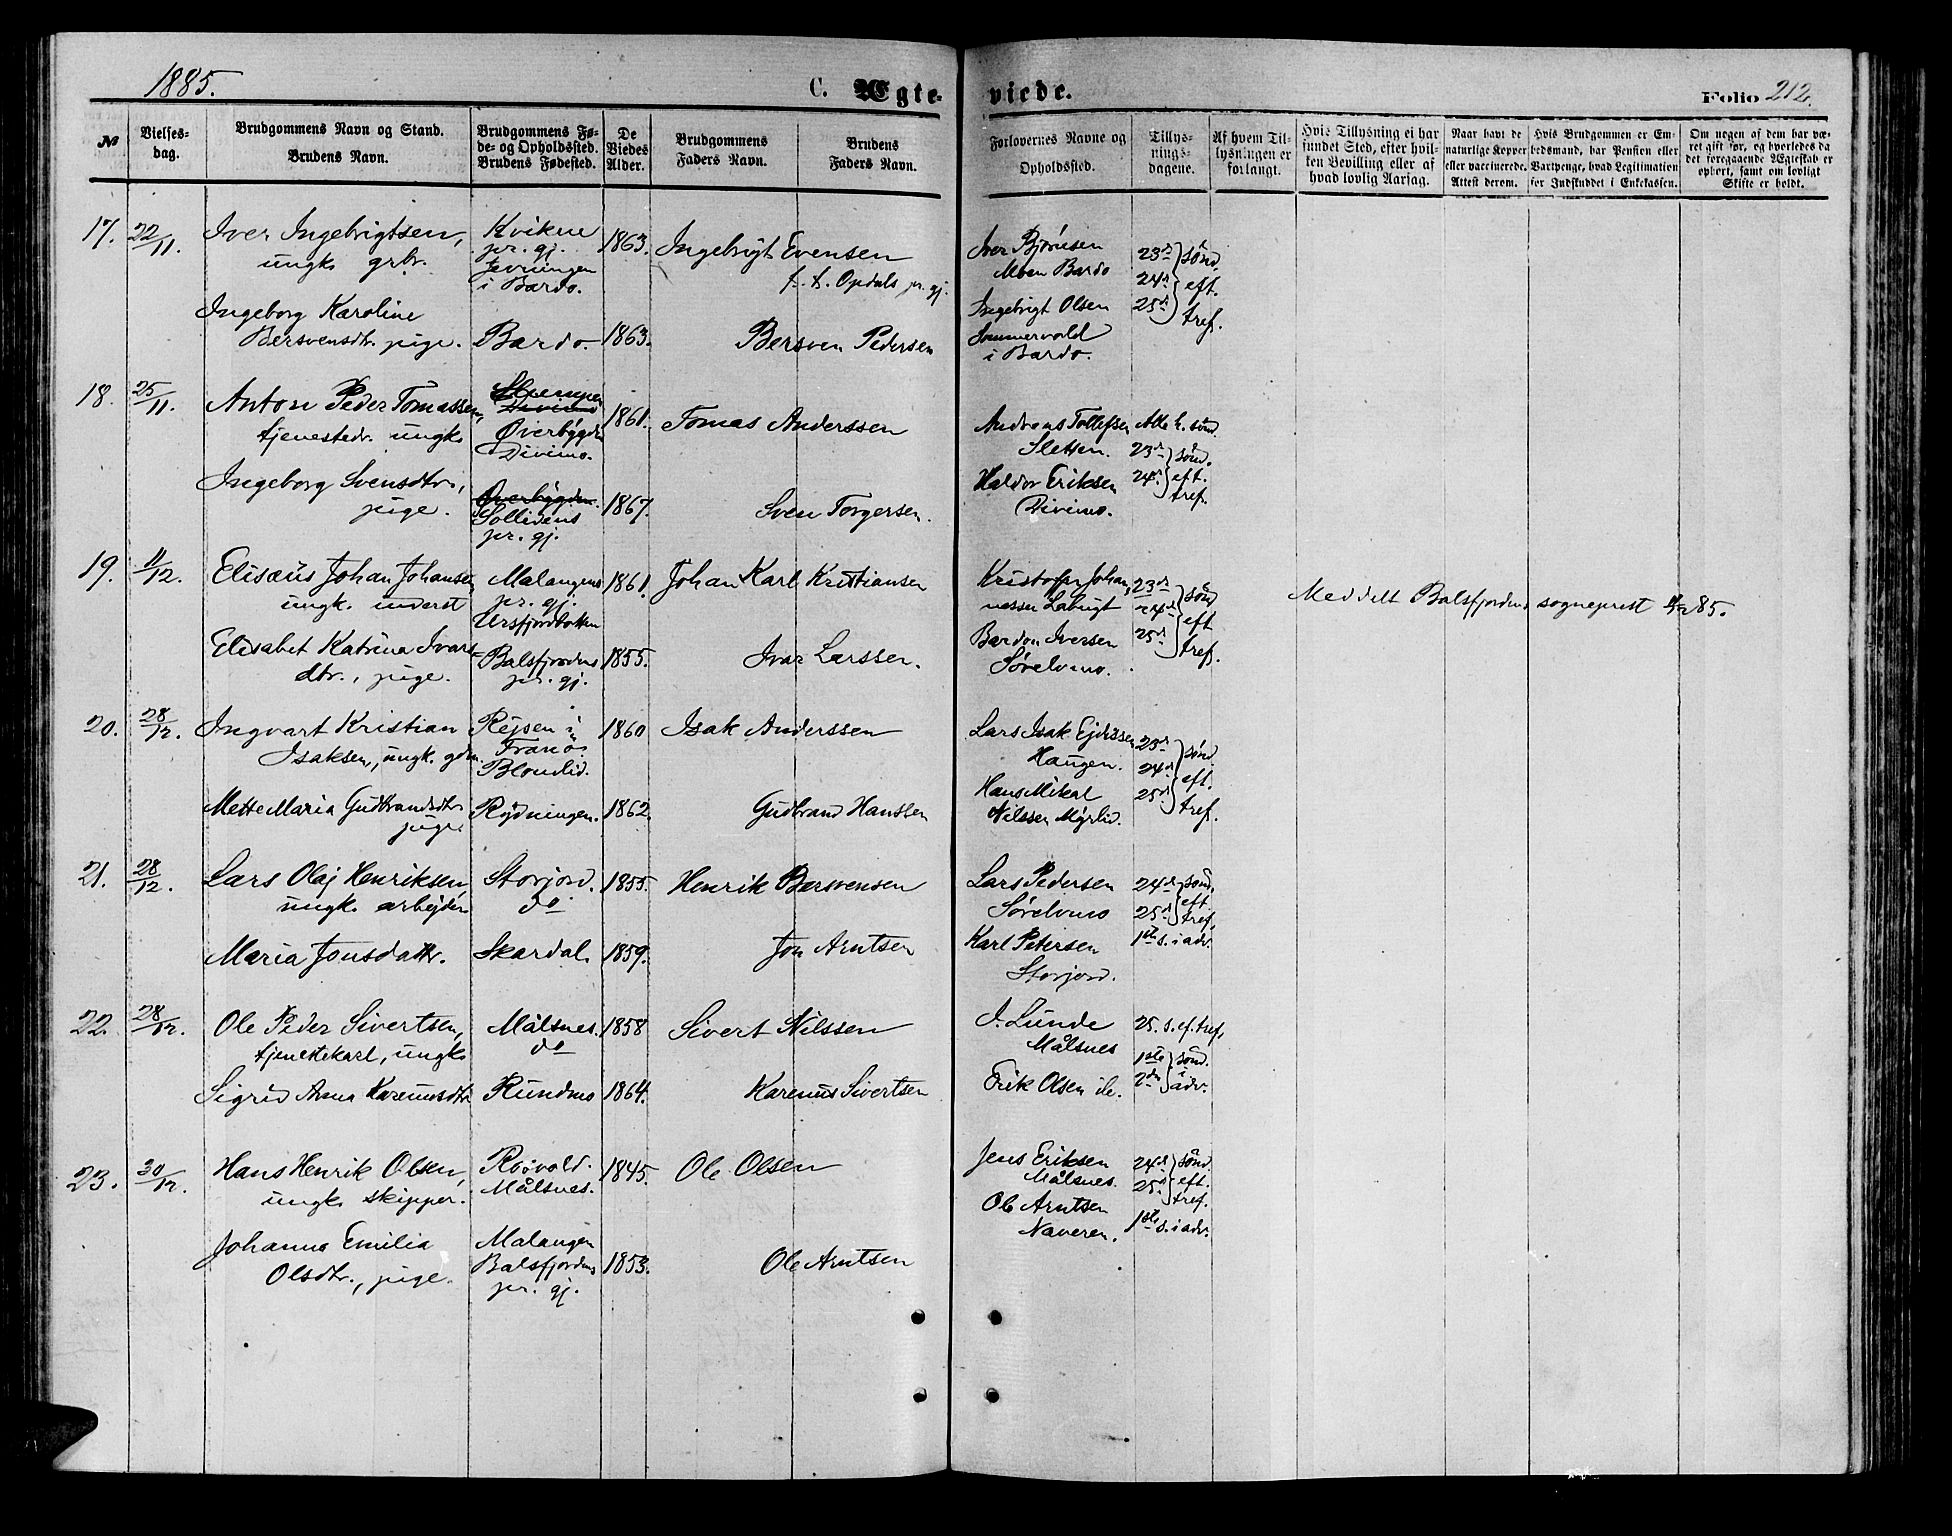 1885.
C. Ægte-
viede.
Folio 212.
№
Vielses-
dag.
Brudgommens Navn og Stand.
Brudens Navn.
Brudgommens Fø-
de- og Opholdssted.
Brudens Fødested.
De
Viedes
Alder.
Brudgommens
Faders Navn.
Brudens
Faders Navn.
Forlovernes Navne og
Opholdssted.
Tillys-
nings-
dagene.
Af hvem Til-
lysningen er
forlangt.
Hvis Tillysning ei har
fundet Sted, efter hvil-
ken Bevilling eller af
hvad lovlig Aarsag.
Naar havt de
naturlige Kopper
eller vaccinerede.
Attest derom.
Hvis Brudgommen er Em-
bedsmand, har Pension eller
Vartpenge, hvad Legitimation
for Indskuddet i Enkekassen.
Om nogen af dem har væ-
ret gift før, og hvorledes da
det foregaaende Ægteskab er
ophørt, samt om lovligt
Skifte er holdt.
17. 22/11. Iver Ingebrigtsen,
ungk. grbr.
Kvikne
pr. gj.
i Bardo.
1863. Ingebrigt Evensen
f. t. Opdals pr. gj.
Ingeborg Karoline
Bersvensdtr. pige. Bardo. 1863. Bersven Pedersen
Iver Bjørnsen
Moen Bardo
Ingebrigt Olsen
Sommervold
i Bardo.
23de
24de
25de
sønd.
eft.
tref.
18. 25/11. Anton Peder Tomassen,
tjenestedr. ungk.
Divimo
Øverbygden
Divimo.
1861. Tomas Anderssen
Ingeborg Svensdtr.,
pige.
Øverbygden.
Sollidens
pr. gj.
1867. Sven Torgersen.
Andreas Tollefsen
Sletten.
Haldor Eriksen
Divimo.
Alle h. sønd.
23de
24de
sønd.
eft.
tref.
19. 11/12. Elisæus Johan Johansen,
ungk. inderst
Malangens
pr. gj.
1861. Johan Karl Kristiansen
Elisabet Katrina Ivars-
dtr., pige.
Balsfjordens
pr. gj.
1855. Ivar Larssen.
Kristofer Johan-
nessen
Bardon Iversen
Sørelvmo.
23de
24de
25de
sønd
eft
tref.
Meddelt Balsfjordens sogneprest 85.
20. 28/12. Ingvart Kristian
Isaksen, ungk. gdm.
Rejsen i
Tranø.
1860 Isak Anderssen
Mette Maria Gudbrandsdtr.
pige.
Rydningen. 1862. Gudbrand Hanssen
Lars Isak
Haugen.
Hans Mikal
Nilssen Myrlid.
23de
24de
25de
sønd
eft.
tref.
21. 28/12. Lars Olaj Henriksen,
ungk. arbejder
Storjord.
do
1855. Henrik Bersvensen
Maria Jonsdattr. Skardal. 1859. Jon Arntsen
Lars Pedersen
Sørelvmo
Karl Petersen
Storjord.
24de
25de
sønd.
eft.
tref.
1ste s. i adv.
22. 28/12. Ole Peder Sivertsen,
tjenestekarl, ungk.
Målsnes.
do
1858 Sivert Nilssen
Sigrid Anna Karenusdtr. Rundmo 1864. Karenus Sivertsen
J. Lunde
Målsnes
Erik Olsen ib.
25. s. ef. tref.
1ste
2den
sønd.
i
adv.
23. 30/12. Hans Henrik Olsen,
ungk. skipper.
Målsnes.
1845. Ole Olsen
Johanna Emilia
Olsdtr., pige.
Malangen
Balsfjordens
pr. gj.
1853. Ole Arntsen
Jens Eriksen
Målsnes.
Ole Arntsen
Naveren.
24de
25de
sønd.
eft.
tref.
1ste s. i adv.